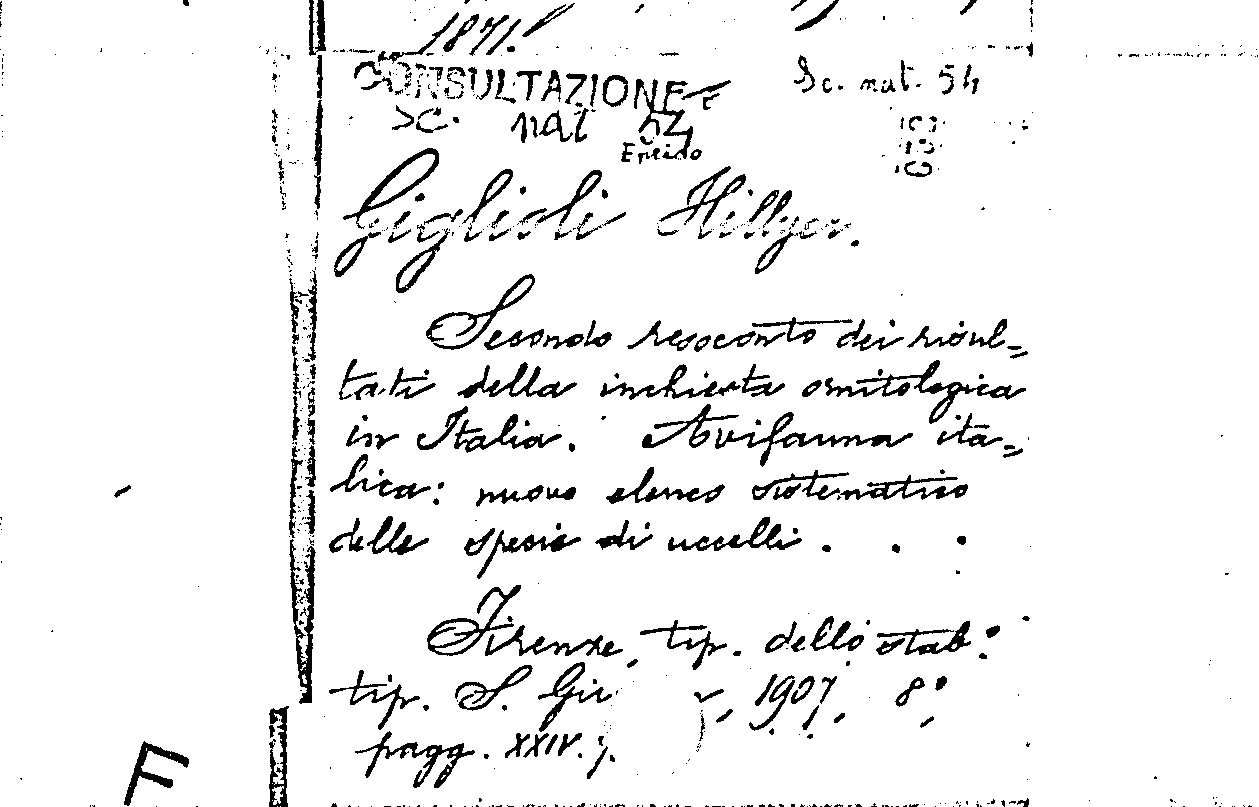 1871.
CONSULTAZIONE
Sc. nat. 54
Sc. nat 52
Giglioli Hillyer.
Secondo resoconto dei risul-
tati della inchiesta ornitologica
in Italia. Avifauna ita-
lica: nuovo elenco sistematico
delle specie di uccelli. . .
Firenze, tip. dello stab.
tip. S. Giu , 1907, 8°
pagg. XXIV.
F